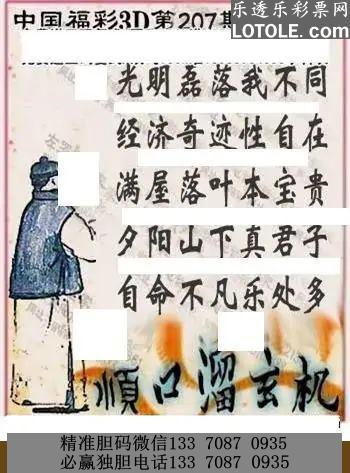 中国福彩3D第207期
乐透乐彩票网
LOTOLE.COM
光明磊落我不同
经济奇迹性自在
满屋落叶本宝贵
夕阳山下真君子
自命不凡乐处多
順口溜玄机
精准胆码微信133 7087 0935
必赢独胆电话133 7087 0935